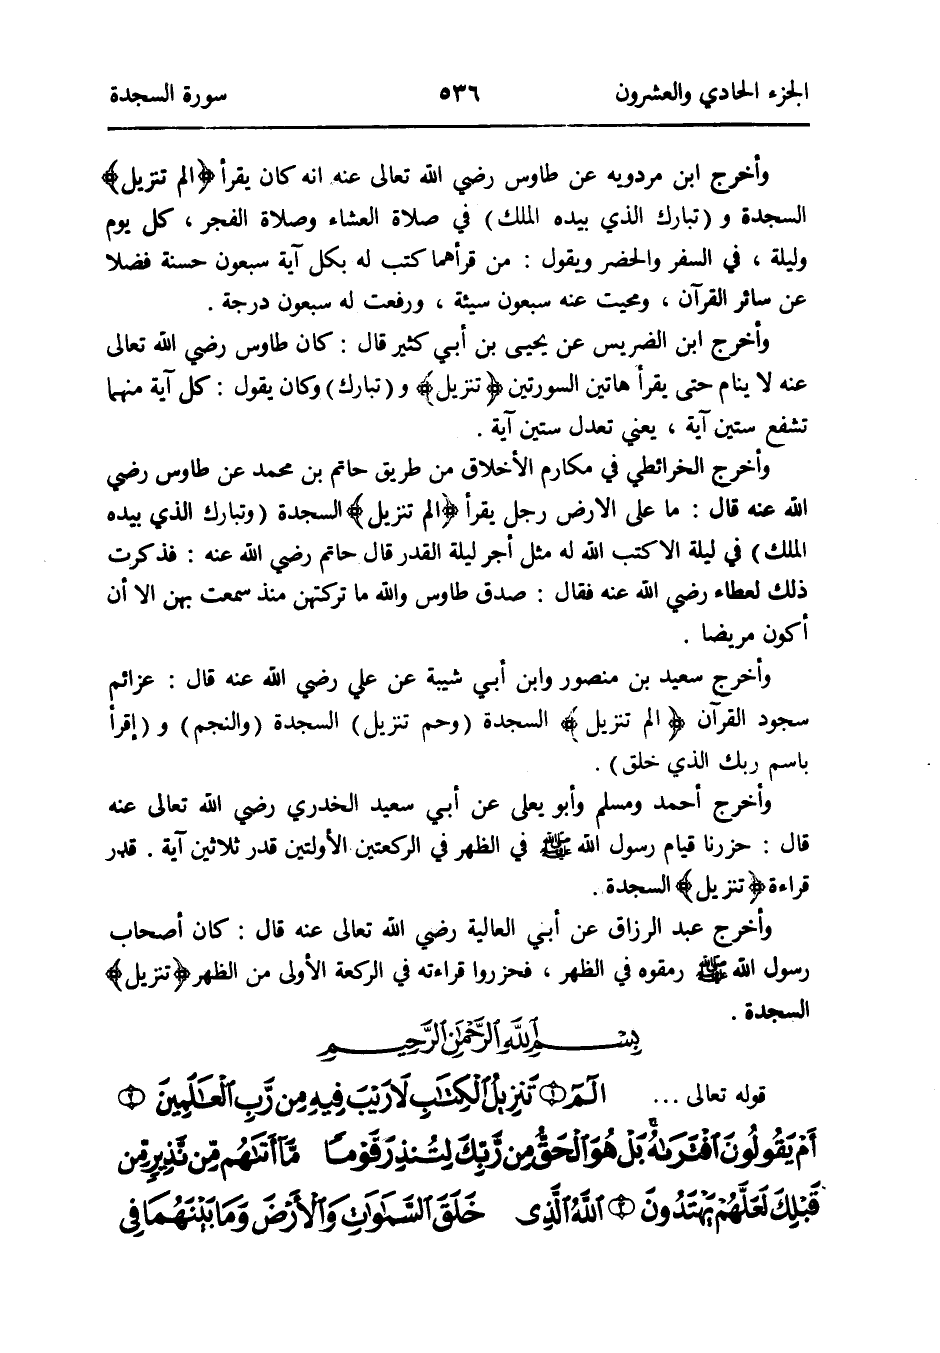 الجزء الحادي والعشرون ٥٣٦ سورة السجدة
وأخرج ابن مردويه عن طاوس رضي الله تعالى عنه انه كان يقرأ ﴿الم تنزيل﴾
السجدة و (تبارك الذي بيده الملك) في صلاة العشاء وصلاة الفجر ، كل يوم
وليلة ، في السفر والحضر ويقول : من قرأهما كتب له بكل آية سبعون حسنة فضلا
عن سائر القرآن ، ومحيت عنه سبعون سيئة ، ورفعت له سبعون درجة .
وأخرج ابن الضريس عن يحيى بن أبي كثير قال : كان طاوس رضي الله تعالى
عنه لا ينام حتى يقرأ هاتين السورتين ﴿تنزيل﴾ و (تبارك) وكان يقول : كل آية منهما
تشفع ستين آية ، يعني تعدل ستين آية .
وأخرج الخرائطي في مكارم الأخلاق من طريق حاتم بن محمد عن طاوس رضي
الله عنه قال : ما على الارض رجل يقرأ ﴿الم تنزيل﴾ السجدة (وتبارك الذي بيده
الملك) في ليلة الا كتب الله له مثل أجر ليلة القدر قال حاتم رضي الله عنه : فذكرت
ذلك لعطاء رضي الله عنه فقال : صدق طاوس والله ما تركتهن منذ سمعت بهن الا أن
أكون مريضا .
وأخرج سعيد بن منصور وابن أبي شيبة عن علي رضي الله عنه قال : عزائم
سجود القرآن ﴿الم تنزيل﴾ السجدة (وحم تنزيل) السجدة (والنجم) و (إقرأ
باسم ربك الذي خلق) .
وأخرج أحمد ومسلم وأبو يعلى عن أبي سعيد الخدري رضي الله تعالى عنه
قال : حزرنا قيام رسول الله ﷺ في الظهر في الركعتين الأولتين قدر ثلاثين آية . قدر
قراءة ﴿تنزيل﴾ السجدة .
وأخرج عبد الرزاق عن أبي العالية رضي الله تعالى عنه قال : كان أصحاب
رسول الله ﷺ رمقوه في الظهر ، فحزروا قراءته في الركعة الأولى من الظهر ﴿تنزيل﴾
السجدة .
بِسْمِ اللَّهِ الرَّحْمَٰنِ الرَّحِيمِ
قوله تعالى ... الٓمٓ ① تَنزِيلُ ٱلْكِتَٰبِ لَا رَيْبَ فِيهِ مِن رَّبِّ ٱلْعَٰلَمِينَ ②
أَمْ يَقُولُونَ ٱفْتَرَىٰهُۚ بَلْ هُوَ ٱلْحَقُّ مِن رَّبِّكَ لِتُنذِرَ قَوْمًا مَّآ أَتَىٰهُم مِّن نَّذِيرٍ مِّن
قَبْلِكَ لَعَلَّهُمْ يَهْتَدُونَ ③ ٱللَّهُ ٱلَّذِى خَلَقَ ٱلسَّمَٰوَٰتِ وَٱلْأَرْضَ وَمَا بَيْنَهُمَا فِى